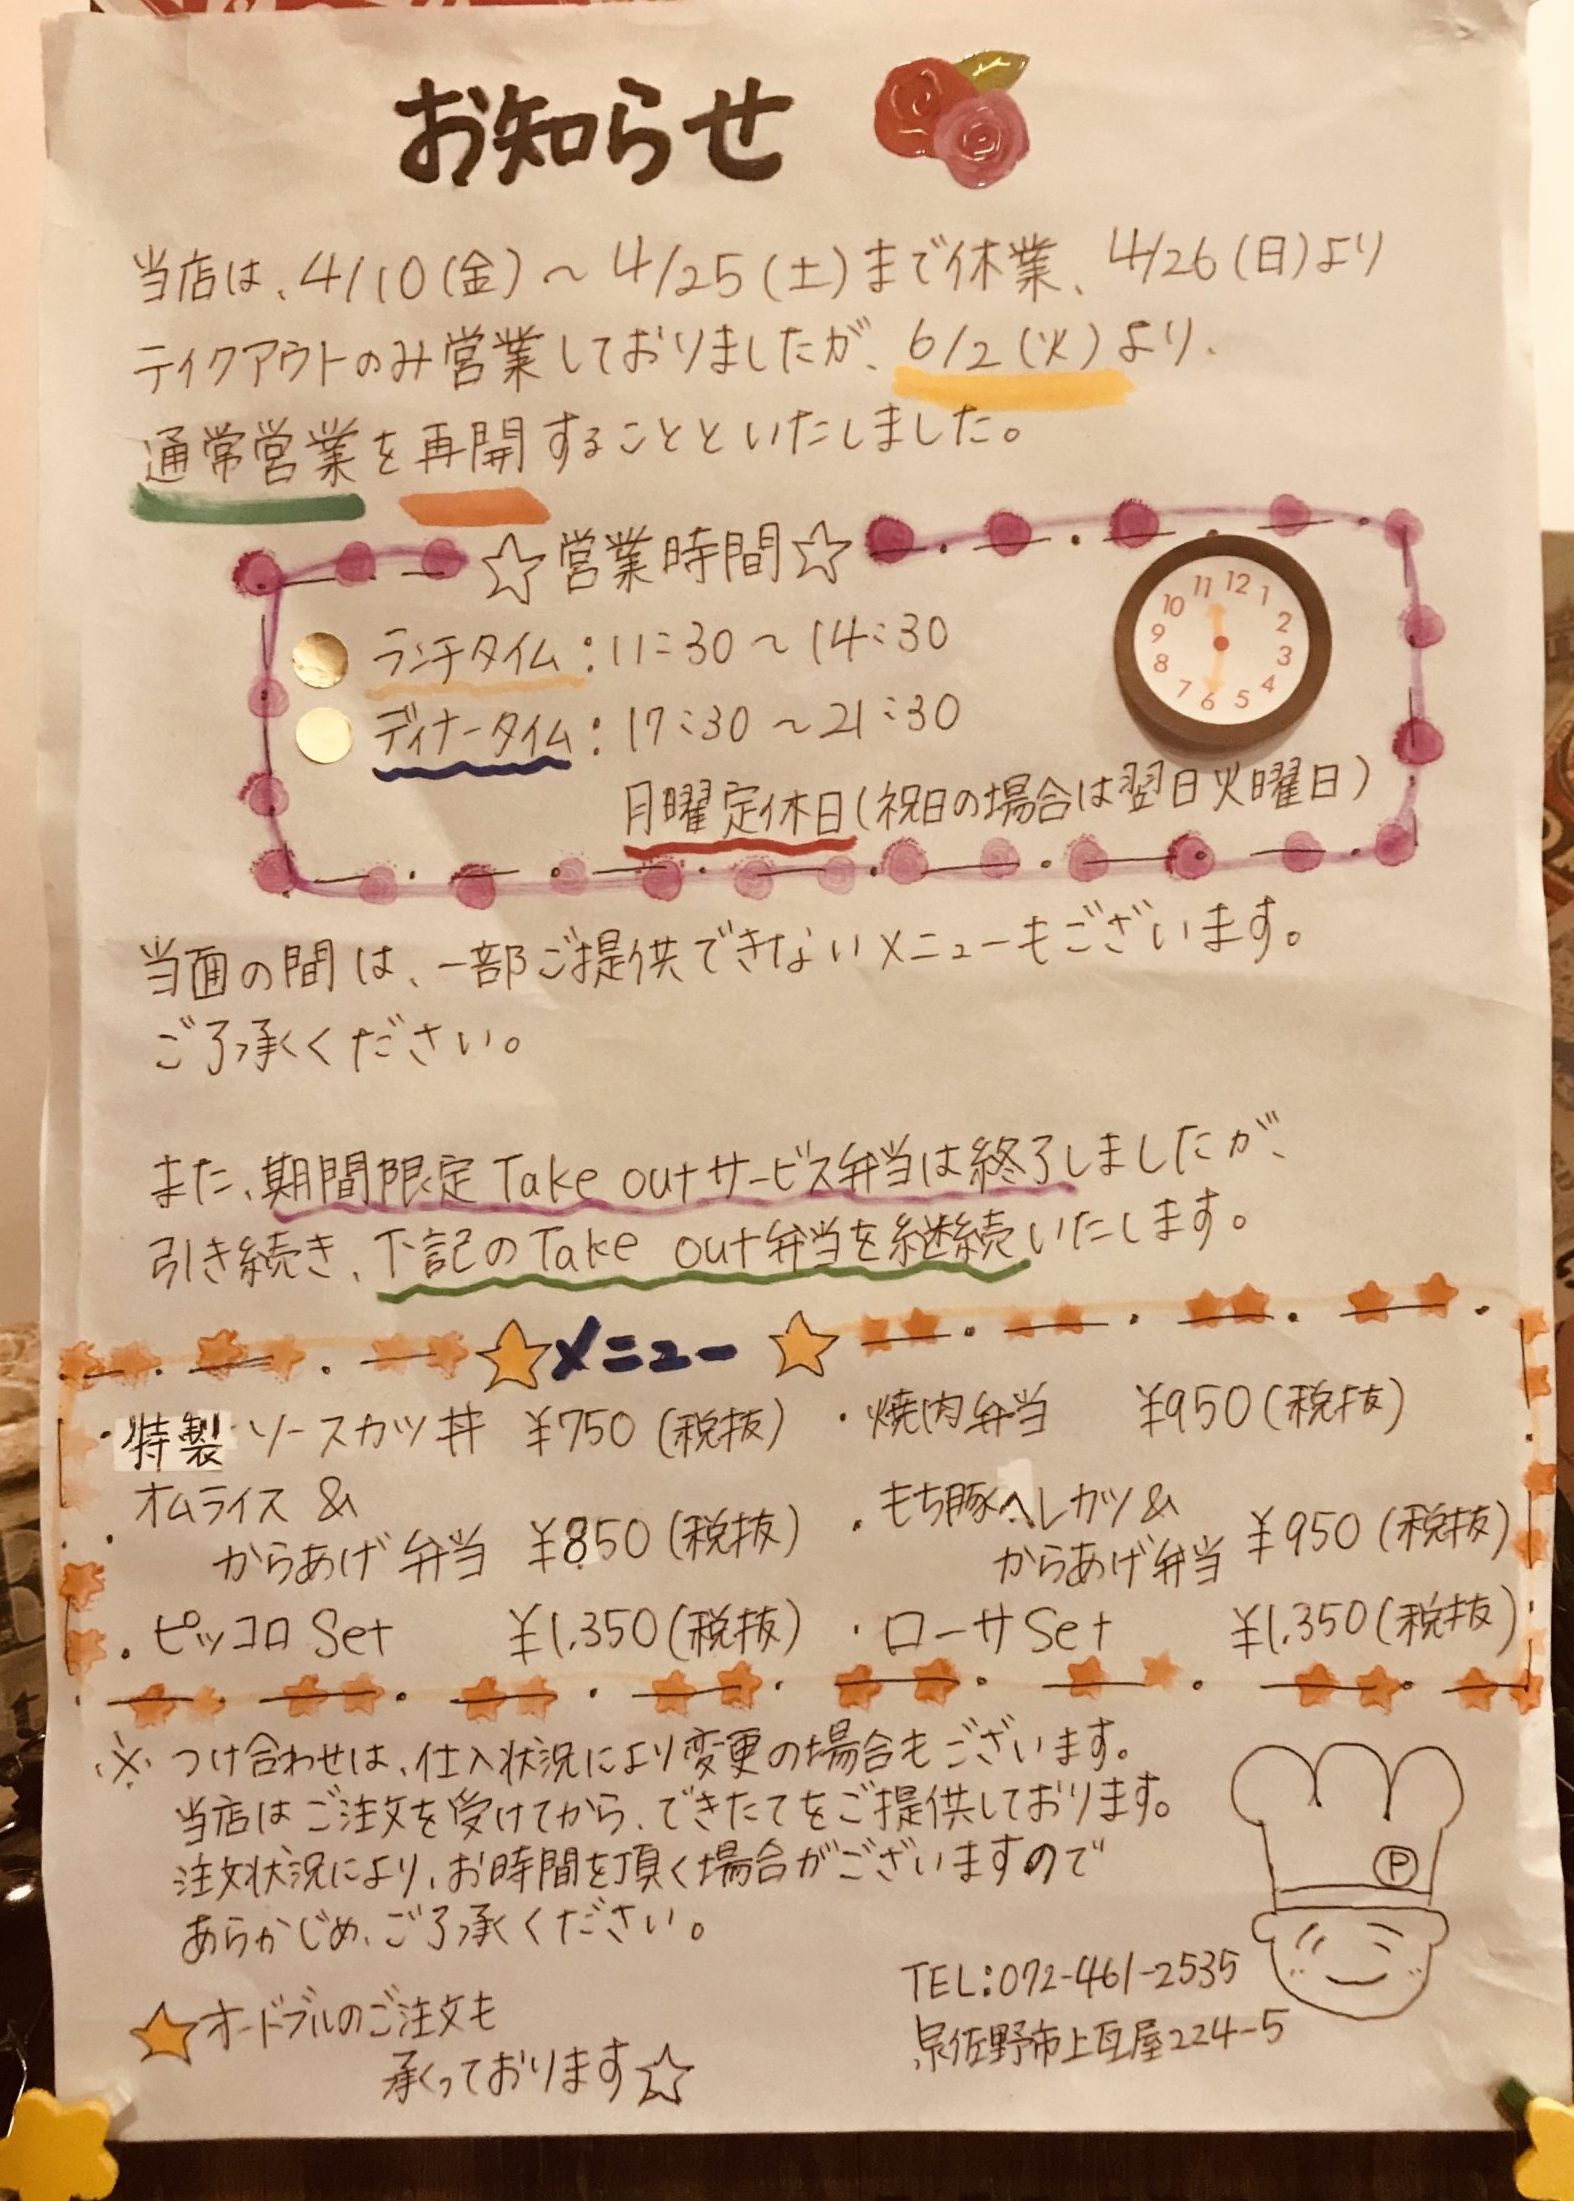 お知らせ
当店は、4/10(金)～4/25(土)まで休業、4/26(日)より
テイクアウトのみ営業しておりましたが、6/2(火)より、
通常営業を再開することといたしました。
☆営業時間☆
ランチタイム：11:30～14:30
ディナータイム：17:30～21:30
月曜定休日(祝日の場合は翌日火曜日)
11 12 1
10 2
9 3
8 4
7 6 5
当面の間は、一部ご提供できないメニューもございます。
ご了承ください。
また、期間限定Take outサービス弁当は終了しましたが、
引き続き、下記のTake out弁当を継続いたします。
☆メニュー☆
・特製ソースカツ丼 ¥750(税抜) ・焼肉弁当 ¥950(税抜)
・オムライス&
からあげ弁当 ¥850(税抜)
・もち豚ヘレカツ&
からあげ弁当 ¥950(税抜)
・ピッコロSet ¥1,350(税抜) ・ローサSet ¥1,350(税抜)
※つけ合わせは、仕入状況により変更の場合もございます。
当店はご注文を受けてから、できたてをご提供しております。
注文状況により、お時間を頂く場合がございますので
あらかじめ、ご了承ください。
P
☆オードブルのご注文も
承っております☆
TEL:072-461-2535
泉佐野市上瓦屋224-5